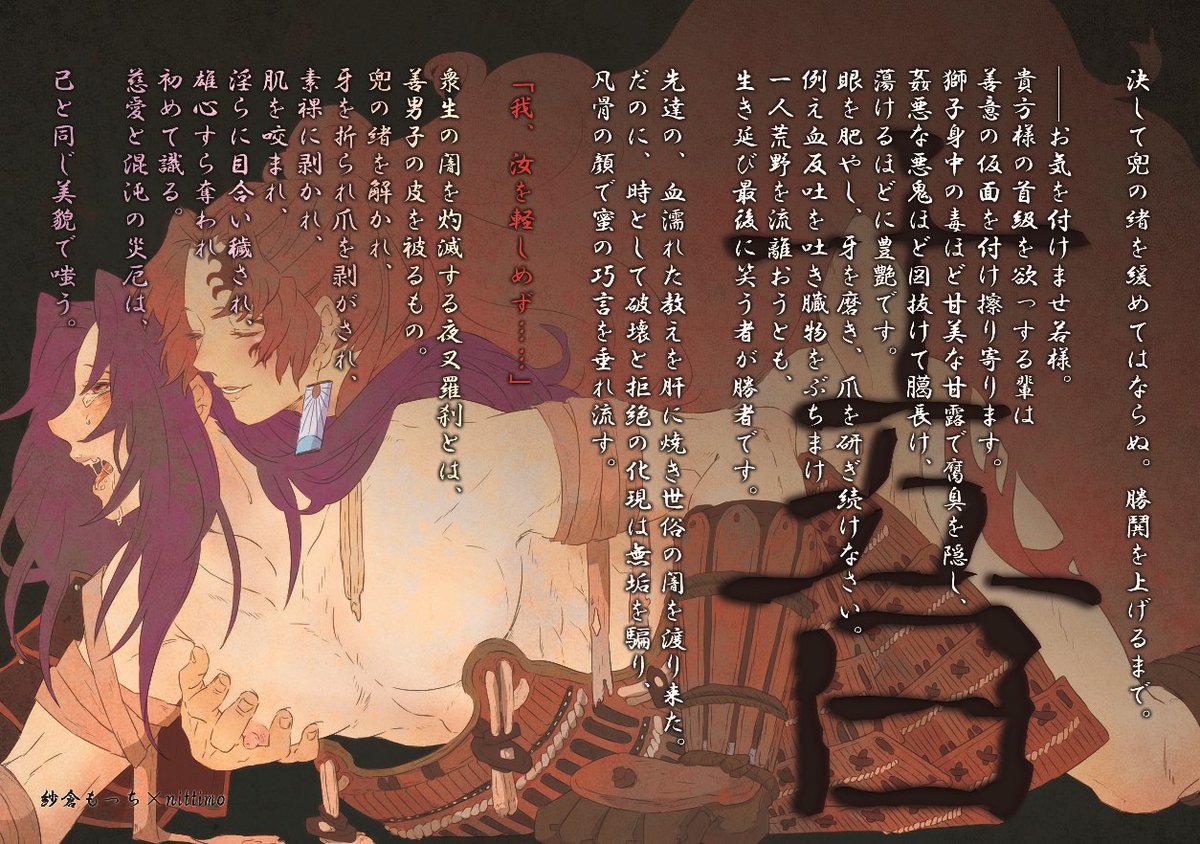 決して兜の緒を緩めてはならぬ。勝鬨を上げるまで。
――お気を付けませ若様。
貴方様の首級を欲っする輩は
善意の仮面を付け擦り寄ります。
獅子身中の毒ほど甘美な甘露で腐臭を隠し、
姦悪な悪鬼ほど図抜けて臈長け、
蕩けるほどに豊艶です。
眼を肥やし、牙を磨き、爪を研ぎ続けなさい。
例え血反吐を吐き臓物をぶちまけ
一人荒野を流離おうとも、
生き延び最後に笑う者が勝者です。
先達の、血濡れた教えを肝に焼き世俗の闇を渡り来た。
だのに、時として破壊と拒絶の化現は無垢を騙り、
凡骨の顔で蜜の巧言を垂れ流す。
「我、汝を軽しめず……」
衆生の闇を灼滅する夜叉羅刹とは、
善男子の皮を被るもの。
兜の緒を解かれ、
牙を折られ爪を剥がされ、
素裸に剥かれ、
肌を咬まれ、
淫らに目合い穢され、
雄心すら奪われ
初めて識る。
慈愛と混沌の災厄は、
己と同じ美貌で嗤う。
紗倉もっち×nittimo